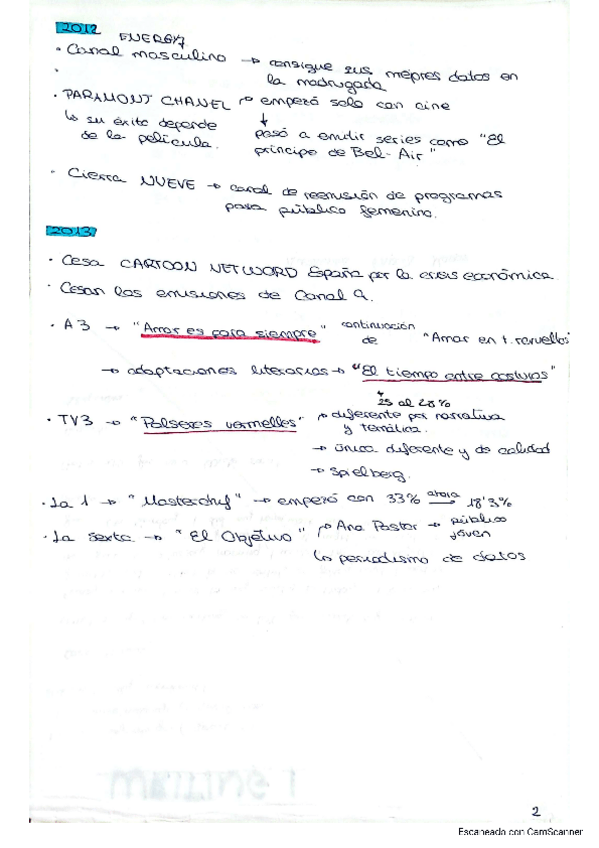 2012
ENERGY
· Canal masculino → consigue sus mejores datos en
la madrugada
·
· PARAMONT CHANEL → empezó solo con cine
↳ su éxito depende de la película.
↓
pasó a emitir series como "El
príncipe de Bel-Air"
· Cierra NUEVE → canal de reemisión de programas
para público femenino.
2013
· Cesa CARTOON NETWORD España por la crisis económica.
· Cesan las emisiones de Canal 9.
· A3 → "Amar es para siempre" continuación de "Amar en t. revueltos"
→ adaptaciones literarias → "El tiempo entre costuras"
↓
25 al 28%
· TV3 → "Polseres vermelles" → diferente por narrativa
y temática.
→ única diferente y de calidad
→ Spielberg.
· La 1 → "Masterchef" → empezó con 33% ahora → 18'3%
· La Sexta → "El Objetivo" → Ana Pastor → público
joven
↳ periodismo de datos
2
Escaneado con CamScanner